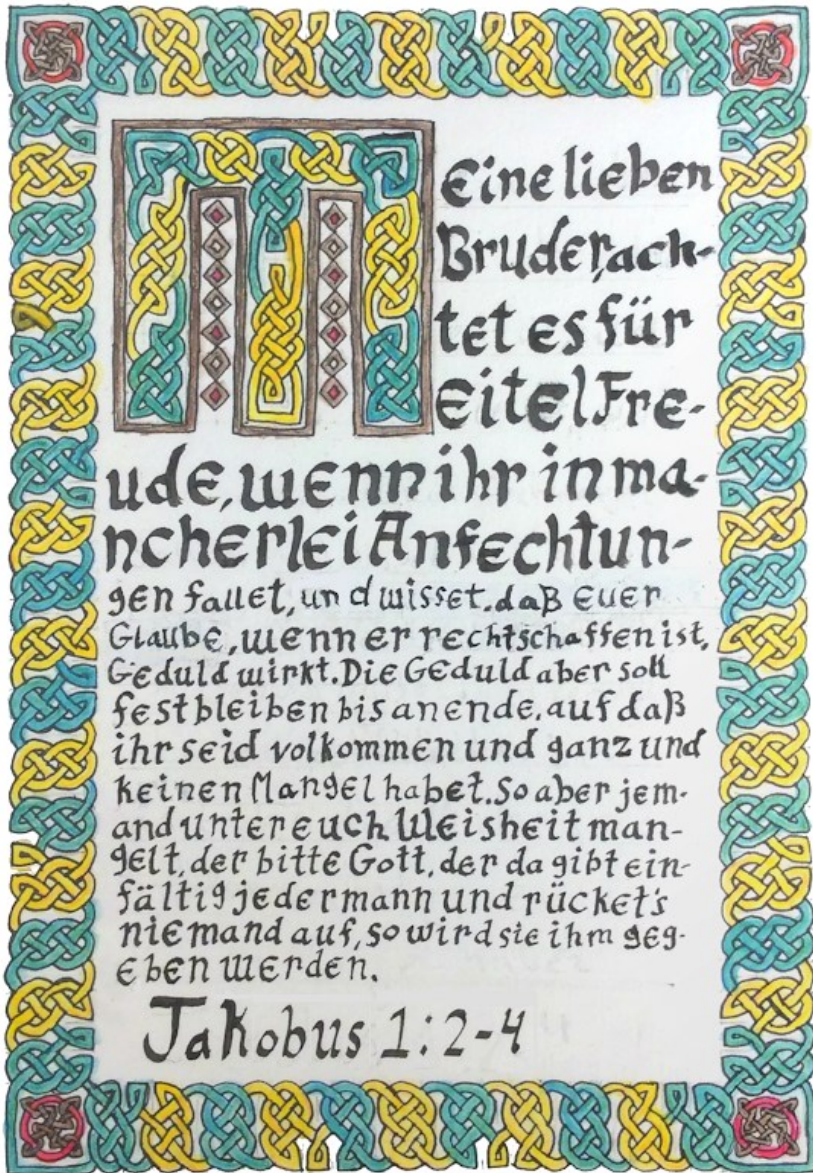 Meine lieben
Bruder, ach-
tet es für
eitel Fre-
ude, wenn ihr in ma-
ncherlei Anfechtun-
gen fallet, und wisset, daß euer
Glaube, wenn er rechtschaffen ist,
Geduld wirkt. Die Geduld aber soll
fest bleiben bis an ende, auf daß
ihr seid volkommen und ganz und
keinen Mangel habet. So aber jem-
and unter euch Weisheit man-
gelt, der bitte Gott, der da gibt ein-
fältig jedermann und rücket's
niemand auf, so wird sie ihm geg-
eben werden.
Jakobus 1:2-4